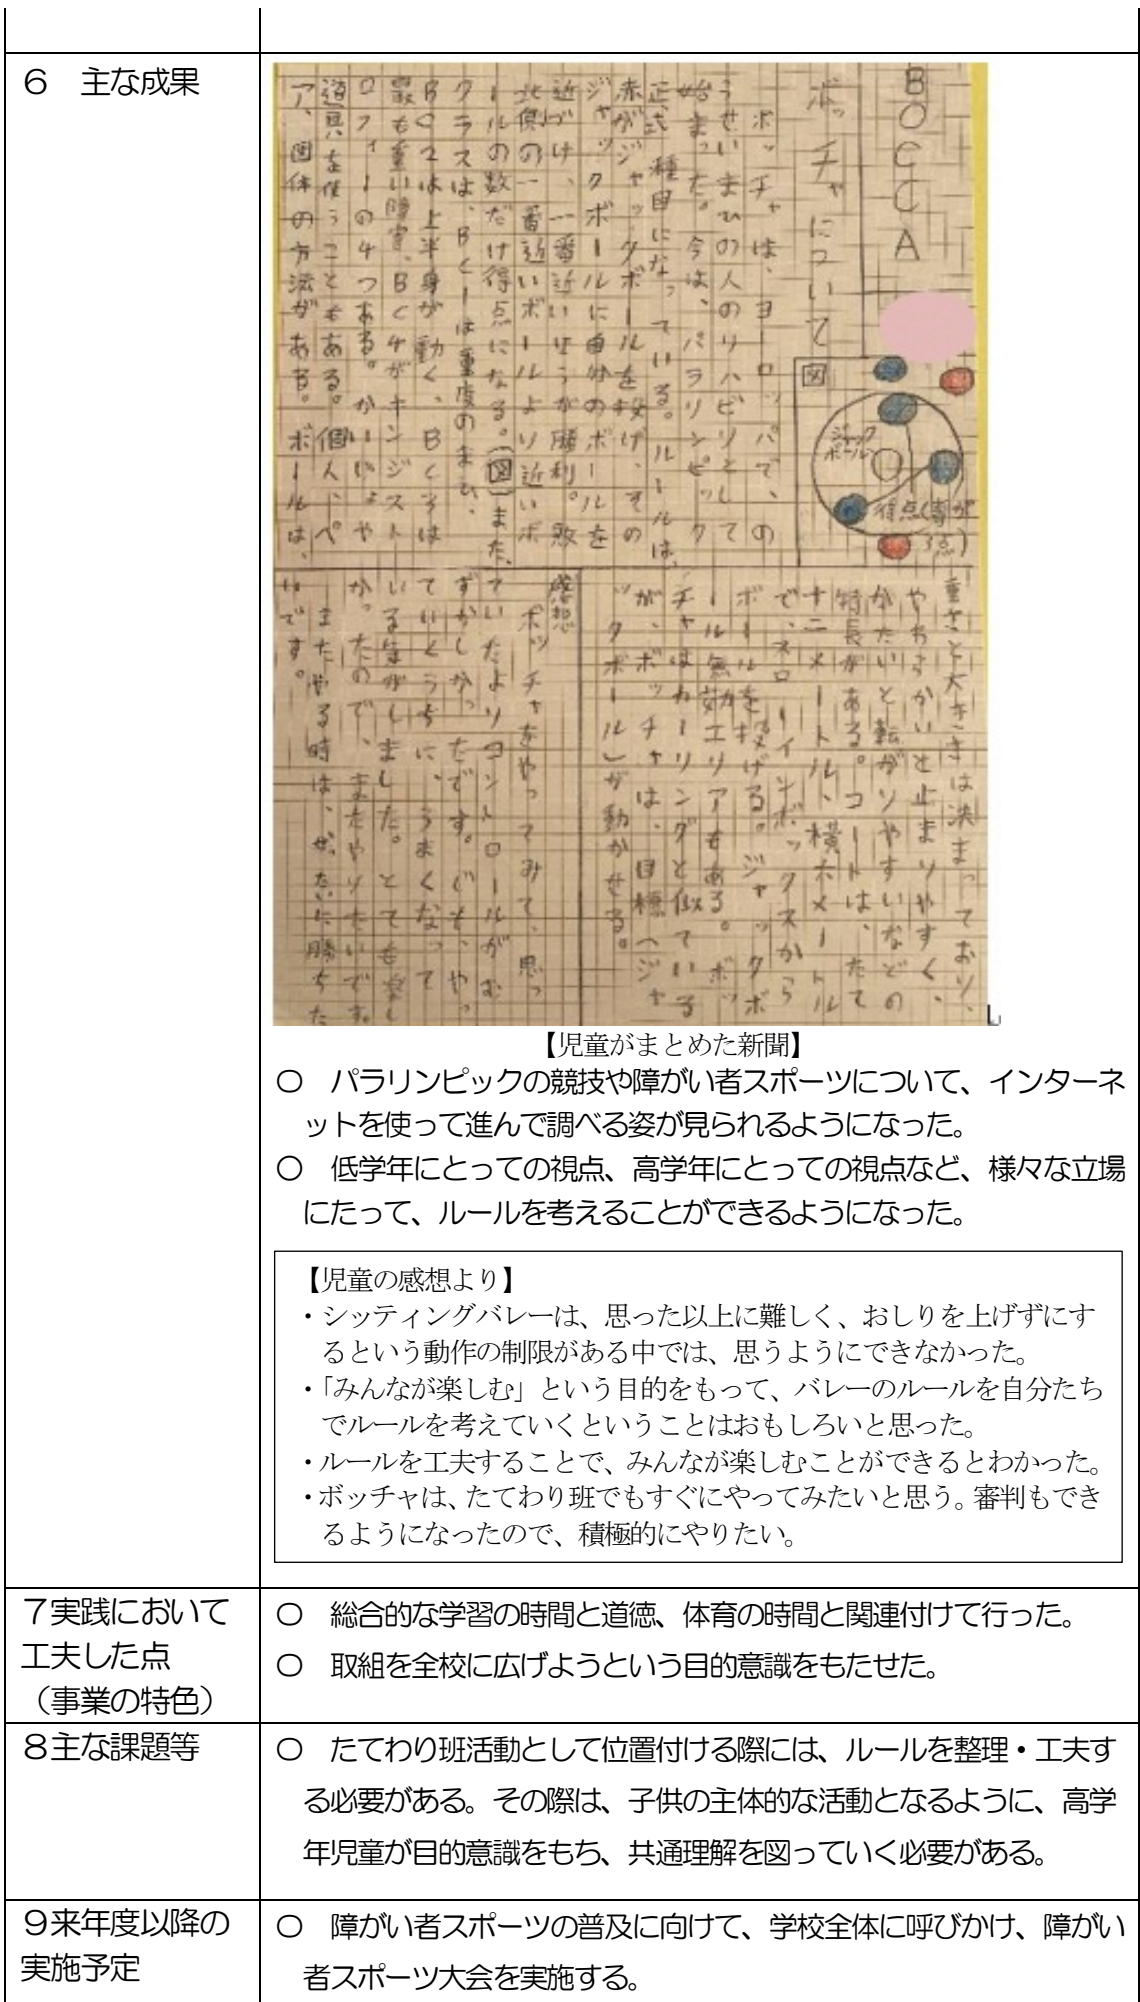 ６　主な成果
BOCCA
ボッチャについて
図
ジャック
ボール
得点(青が
3点)
ボッチャは、ヨーロッパで、の
うせいまひの人のリハビリとして
始まった。今は、パラリンピック
正式種目になっている。ルールは、
赤がジャックボールを投げ、その
ジャックボールに自分のボールを
近づけ、一番近いほうが勝利。敗
北側の一番近いボールより近いボ
ールの数だけ得点になる。(図)また、
クラスは、BC1は重度のまひ、
BC2は上半身が動く、BC3は
最も重い障害、BC4がキンジスト
ロフィーの4つある。かいじょや
道具を使うこともある。個人、ペ
ア、団体の方法がある。ボールは、
重さと大きさは決まっており、
やわらかいと止まりやすく、
かたいと転がりやすいなどの
特長がある。コートは、たて
十二メートル、横六メートル
で、スローインボックスから
ボールを投げる。ジャックボ
ール無効エリアもある。ボッ
チャはカーリングと似ている
が、ボッチャは、目標(ジャ
ックボール)が動かせる。
感想
ボッチャをやってみて、思っ
ていたよりコントロールがむ
ずかしかったです。でも、やっ
ていくうちに、うまくなって
いる気がしました。とても楽し
かったので、またやりたいです。
またやる時は、ぜったいに勝ちた
いです。
【児童がまとめた新聞】
〇　パラリンピックの競技や障がい者スポーツについて、インターネ
ットを使って進んで調べる姿が見られるようになった。
〇　低学年にとっての視点、高学年にとっての視点など、様々な立場
にたって、ルールを考えることができるようになった。
【児童の感想より】
・シッティングバレーは、思った以上に難しく、おしりを上げずにす
るという動作の制限がある中では、思うようにできなかった。
・「みんなが楽しむ」という目的をもって、バレーのルールを自分たち
でルールを考えていくということはおもしろいと思った。
・ルールを工夫することで、みんなが楽しむことができるとわかった。
・ボッチャは、たてわり班でもすぐにやってみたいと思う。審判もでき
るようになったので、積極的にやりたい。
７実践において
工夫した点
（事業の特色）
〇　総合的な学習の時間と道徳、体育の時間と関連付けて行った。
〇　取組を全校に広げようという目的意識をもたせた。
８主な課題等
〇　たてわり班活動として位置付ける際には、ルールを整理・工夫す
る必要がある。その際は、子供の主体的な活動となるように、高学
年児童が目的意識をもち、共通理解を図っていく必要がある。
９来年度以降の
実施予定
〇　障がい者スポーツの普及に向けて、学校全体に呼びかけ、障がい
者スポーツ大会を実施する。